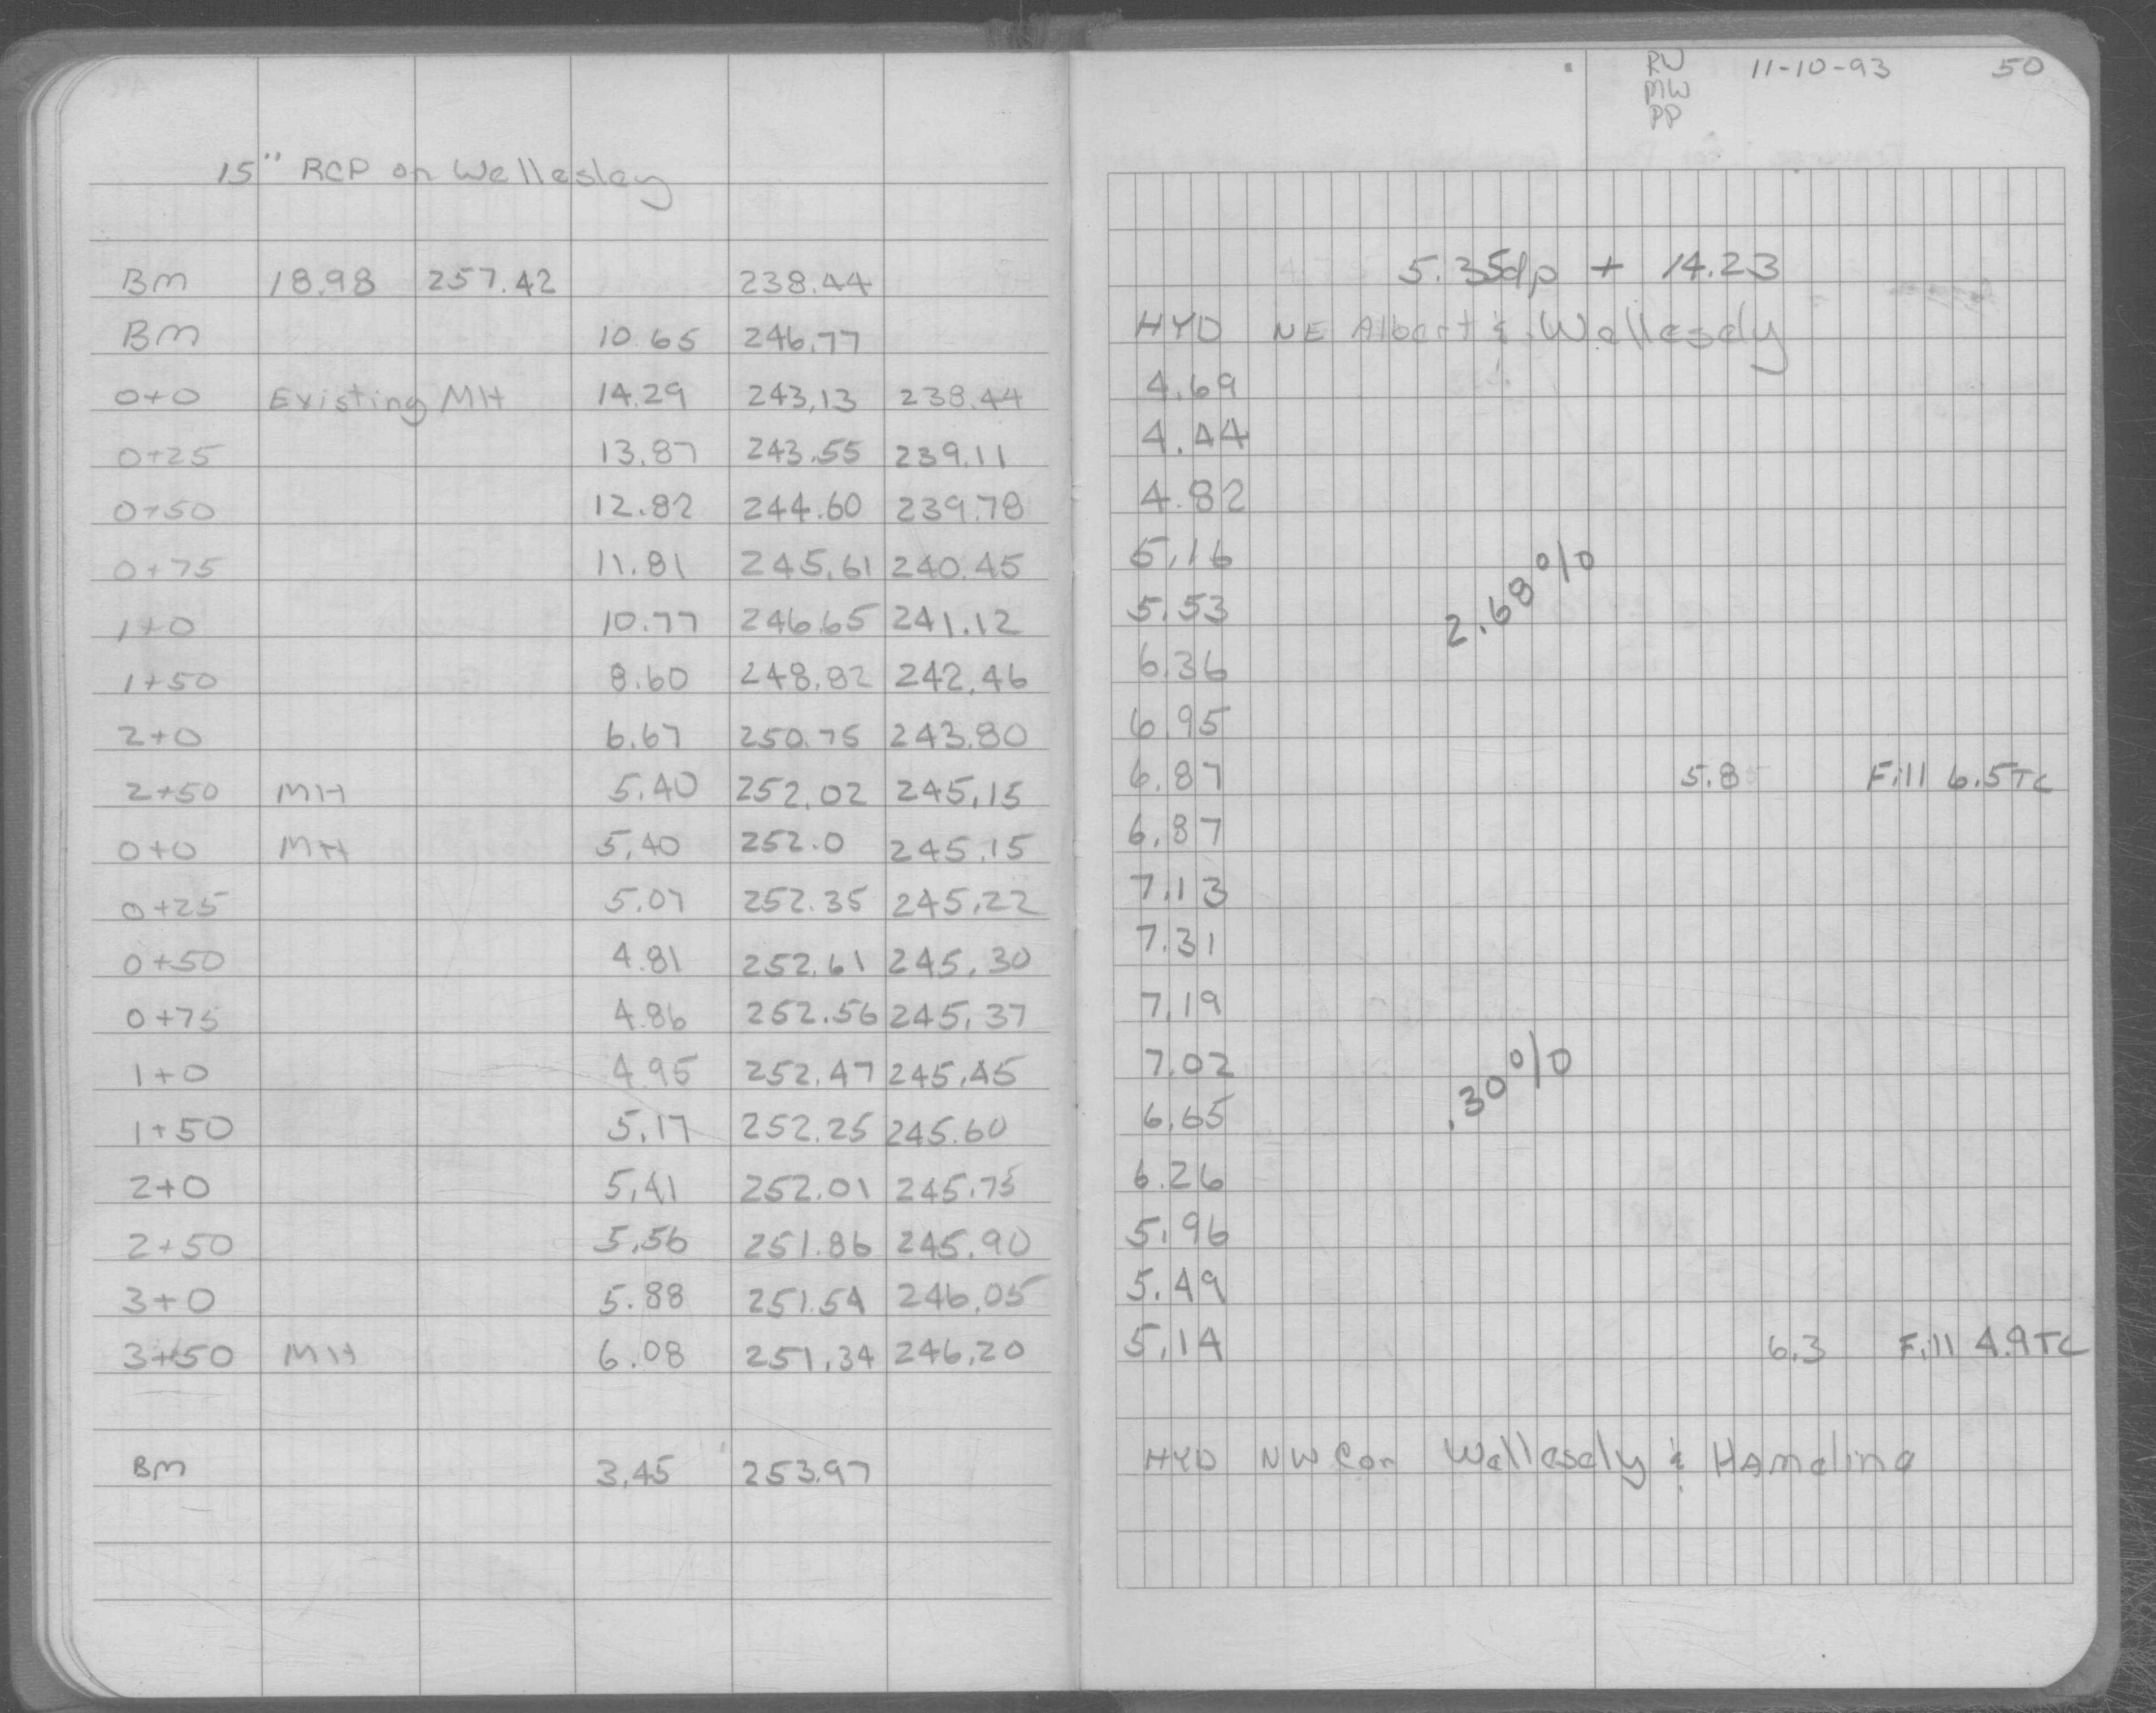 RW 11-10-93 50
MW
PP
15" RCP on Wellesley
BM 18.98 257.42 238.44 5.35dp + 14.23
BM 10.65 246.77 HYD NE Albert & Wellesely
0+0 Existing MH 14.29 243.13 238.44 4.69
0+25 13.87 243.55 239.11 4.44
0+50 12.82 244.60 239.78 4.82
0+75 11.81 245.61 240.45 5.16
1+0 10.77 246.65 241.12 5.53 2.68%
1+50 8.60 248.82 242.46 6.36
2+0 6.67 250.75 243.80 6.95
2+50 MH 5.40 252.02 245.15 6.87 5.8 Fill 6.5TC
0+0 MH 5.40 252.0 245.15 6.87
0+25 5.07 252.35 245.22 7.13
0+50 4.81 252.61 245.30 7.31
0+75 4.86 252.56 245.37 7.19
1+0 4.95 252.47 245.45 7.02 .30%
1+50 5.17 252.25 245.60 6.65
2+0 5.41 252.01 245.75 6.26
2+50 5.56 251.86 245.90 5.96
3+0 5.88 251.54 246.05 5.49
3+50 MH 6.08 251.34 246.20 5.14 6.3 Fill 4.9TC
BM 3.45 253.97 HYD NW Cor Wellesely & Hameline